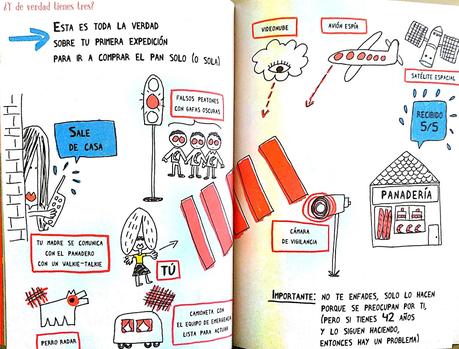 ¿Y de verdad tienes tres?
ESTA ES TODA LA VERDAD
SOBRE TU PRIMERA EXPEDICIÓN
PARA IR A COMPRAR EL PAN SOLO (O SOLA)
FALSOS PEATONES
CON GAFAS OSCURAS
SALE
DE CASA
TU MADRE SE COMUNICA
CON EL PANADERO
CON UN WALKIE-TALKIE
TÚ
PERRO RADAR
CAMIONETA CON
EL EQUIPO DE EMERGENCIA
LISTA PARA ACTUAR
VIDEONUBE
AVIÓN ESPÍA
SATÉLITE ESPACIAL
RECIBIDO
5/5
PANADERÍA
CÁMARA
DE VIGILANCIA
IMPORTANTE: NO TE ENFADES, SOLO LO HACEN
PORQUE SE PREOCUPAN POR TI,
(PERO SI TIENES 42 AÑOS
Y LO SIGUEN HACIENDO,
ENTONCES HAY UN PROBLEMA)